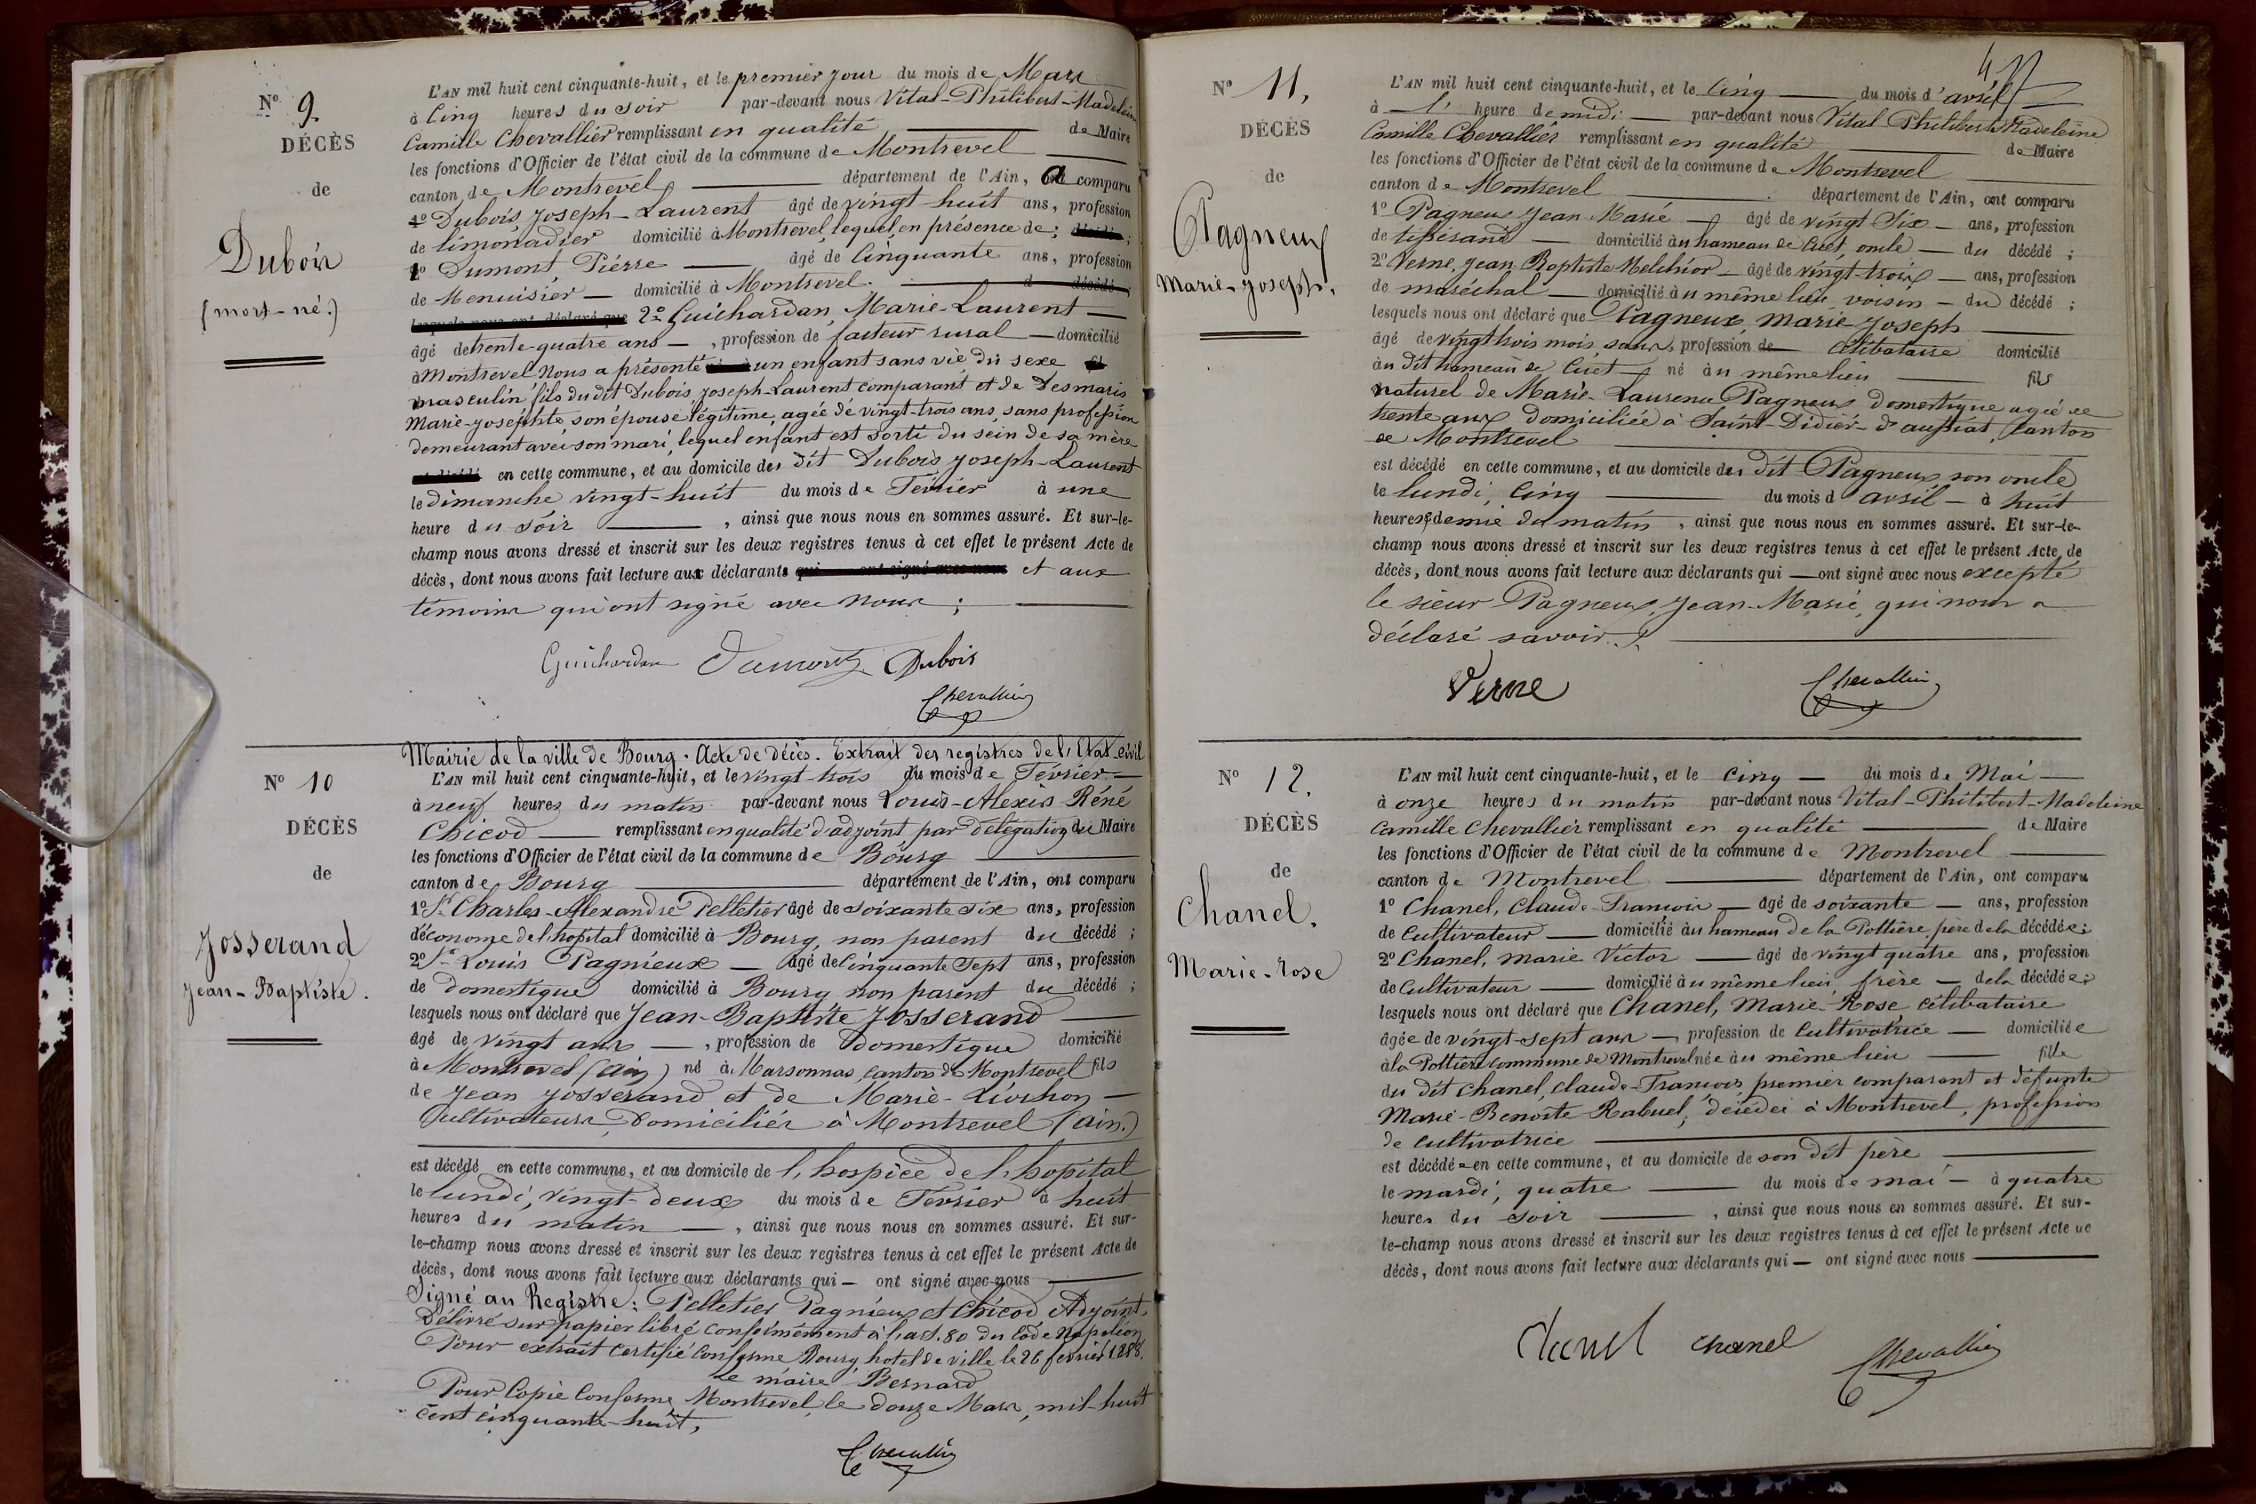 Nº 9.
DÉCÈS
de
Dubois
(mort-né.)
L'AN mil huit cent cinquante-huit, et le premier jour du mois de Mars
à Cinq heures du soir par-devant nous Vital-Philibert-Madeleine
Camille Chevallier remplissant en qualité de Maire
les fonctions d'Officier de l'état civil de la commune de Montrevel
canton de Montrevel département de l'Ain, a comparu
1º Dubois, Joseph-Laurent âgé de vingt huit ans, profession
de limonadier domicilié à Montrevel, lequel en présence de ;
1º Dumont Piérre âgé de Cinquante ans, profession
de Menuisier domicilié à Montrevel.
2º Guichardan, Marie-Laurent
âgé de trente-quatre ans, profession de facteur rural domicilié
à Montrevel Nous a présenté un enfant sans vie du sexe
masculin fils du dit Dubois, Joseph-Laurent comparant et de Desmaris
Marie-Joséphte son épouse légitime, agée de vingt-trois ans, sans profession
demeurant avec son mari, lequel enfant est sorti du sein de sa mère
en cette commune, et au domicile du dit Dubois Joseph-Laurent
le dimanche vingt-huit du mois de Février à une
heure du soir, ainsi que nous nous en sommes assuré. Et sur-le-
champ nous avons dressé et inscrit sur les deux registres tenus à cet effet le présent Acte de
décès, dont nous avons fait lecture aux déclarants et aux
témoins qui ont signé avec nous ;
Guichardan Dumont Dubois
Chevallier
Nº 10
DÉCÈS
de
Josserand
Jean-Baptiste.
Mairie de la ville de Bourg. Acte de décès. Extrait des registres de l'Etat-civil
L'AN mil huit cent cinquante-huit, et le vingt-trois du mois de Février
à neuf heures du matin par-devant nous Louis-Alexis Réné
Chicod remplissant en qualité d'adjoint par délégation du Maire
les fonctions d'Officier de l'état civil de la commune de Bourg
canton de Bourg département de l'Ain, ont comparu
1º Sr Charles-Alexandre Pelletier âgé de soixante six ans, profession
d'économe de l'hopital domicilié à Bourg, non parent du décédé ;
2º Sr Louis Pagnieux âgé de Cinquante Sept ans, profession
de domestique domicilié à Bourg non parent du décédé ;
lesquels nous ont déclaré que Jean-Baptiste Josserand
âgé de vingt ans, profession de domestique domicilié
à Montrevel (ain) né à Marsonnas, canton de Montrevel fils
de Jean Josserand et de Marie-Liochon
Cultivateurs, domiciliés à Montrevel (ain.)
est décédé en cette commune, et au domicile de l'hospice de l'hopital
le lundi, vingt-deux du mois de Février à huit
heures du matin, ainsi que nous nous en sommes assuré. Et sur-
le-champ nous avons dressé et inscrit sur les deux registres tenus à cet effet le présent Acte de
décès, dont nous avons fait lecture aux déclarants qui ont signé avec nous
Signé au Registre : Pelletier Pagnieux et Chicod Adjoint.
Délivré sur papier libre conformément à l'art. 80 du Code Napoléon
Pour extrait certifié conforme Bourg, hotel de ville le 26 février 1858.
Le maire Bernard
Pour Copie Conforme, Montrevel, le douze Mars, mil-huit
cent cinquante-huit,
Chevallier
Nº 11.
DÉCÈS
de
Pagneux
Marie-Joseph.
L'AN mil huit cent cinquante-huit, et le Cinq du mois d'avril
à 1' heure de midi par-devant nous Vital Philibert Madeleine
Camille Chevallier remplissant en qualité de Maire
les fonctions d'Officier de l'état civil de la commune de Montrevel
canton de Montrevel département de l'Ain, ont comparu
1º Pagneux Jean Marie âgé de vingt Six ans, profession
de tisserand domicilié au hameau de Cuet, oncle du décédé ;
2º Verne, Jean Baptiste Melchior âgé de vingt-trois ans, profession
de maréchal domicilié au même lieu, voisin du décédé ;
lesquels nous ont déclaré que Pagneux, Marie Joseph
âgé de vingt trois mois, sans profession de célibataire domicilié
au dit hameau de Cuet né au même lieu fils
naturel de Marie-Laurence Pagneux domestique agée de
trente ans domiciliée à Saint-Didier-d'aussiat, Canton
de Montrevel
est décédé en cette commune, et au domicile du dit Pagneux son oncle
le lundi, Cinq du mois d avril à huit
heures & demie du matin, ainsi que nous nous en sommes assuré. Et sur-le-
champ nous avons dressé et inscrit sur les deux registres tenus à cet effet le présent Acte de
décès, dont nous avons fait lecture aux déclarants qui ont signé avec nous excepté
le sieur Pagneux, Jean-Marie, qui nous a
déclaré savoir.
Verne Chevallier
Nº 12.
DÉCÈS
de
Chanel.
Marie-Rose
L'AN mil huit cent cinquante-huit, et le Cinq du mois de Mai
à onze heures du matin par-devant nous Vital-Philibert-Madeleine
Camille Chevallier remplissant en qualité de Maire
les fonctions d'Officier de l'état civil de la commune de Montrevel
canton de Montrevel département de l'Ain, ont comparu
1º Chanel, Claude-Francois âgé de soixante ans, profession
de Cultivateur domicilié au hameau de la Pottière, père de la décédée ;
2º Chanel, Marie Victor âgé de vingt quatre ans, profession
de Cultivateur domicilié au même lieu, frère de la décédée ;
lesquels nous ont déclaré que Chanel, Marie-Rose célibataire
âgée de vingt-sept ans profession de Cultivatrice domiciliée
à la Pottière commune de Montrevel née au même lieu fille
du dit Chanel, Claude-Francois premier comparant et défunte
Marie-Benoite Rabuel, décédée à Montrevel, profession
de Cultivatrice
est décédée en cette commune, et au domicile de son dit père
le mardi, quatre du mois de mai à quatre
heures du soir, ainsi que nous nous en sommes assuré. Et sur-
le-champ nous avons dressé et inscrit sur les deux registres tenus à cet effet le présent Acte de
décès, dont nous avons fait lecture aux déclarants qui ont signé avec nous
Chanel chanel Chevallier